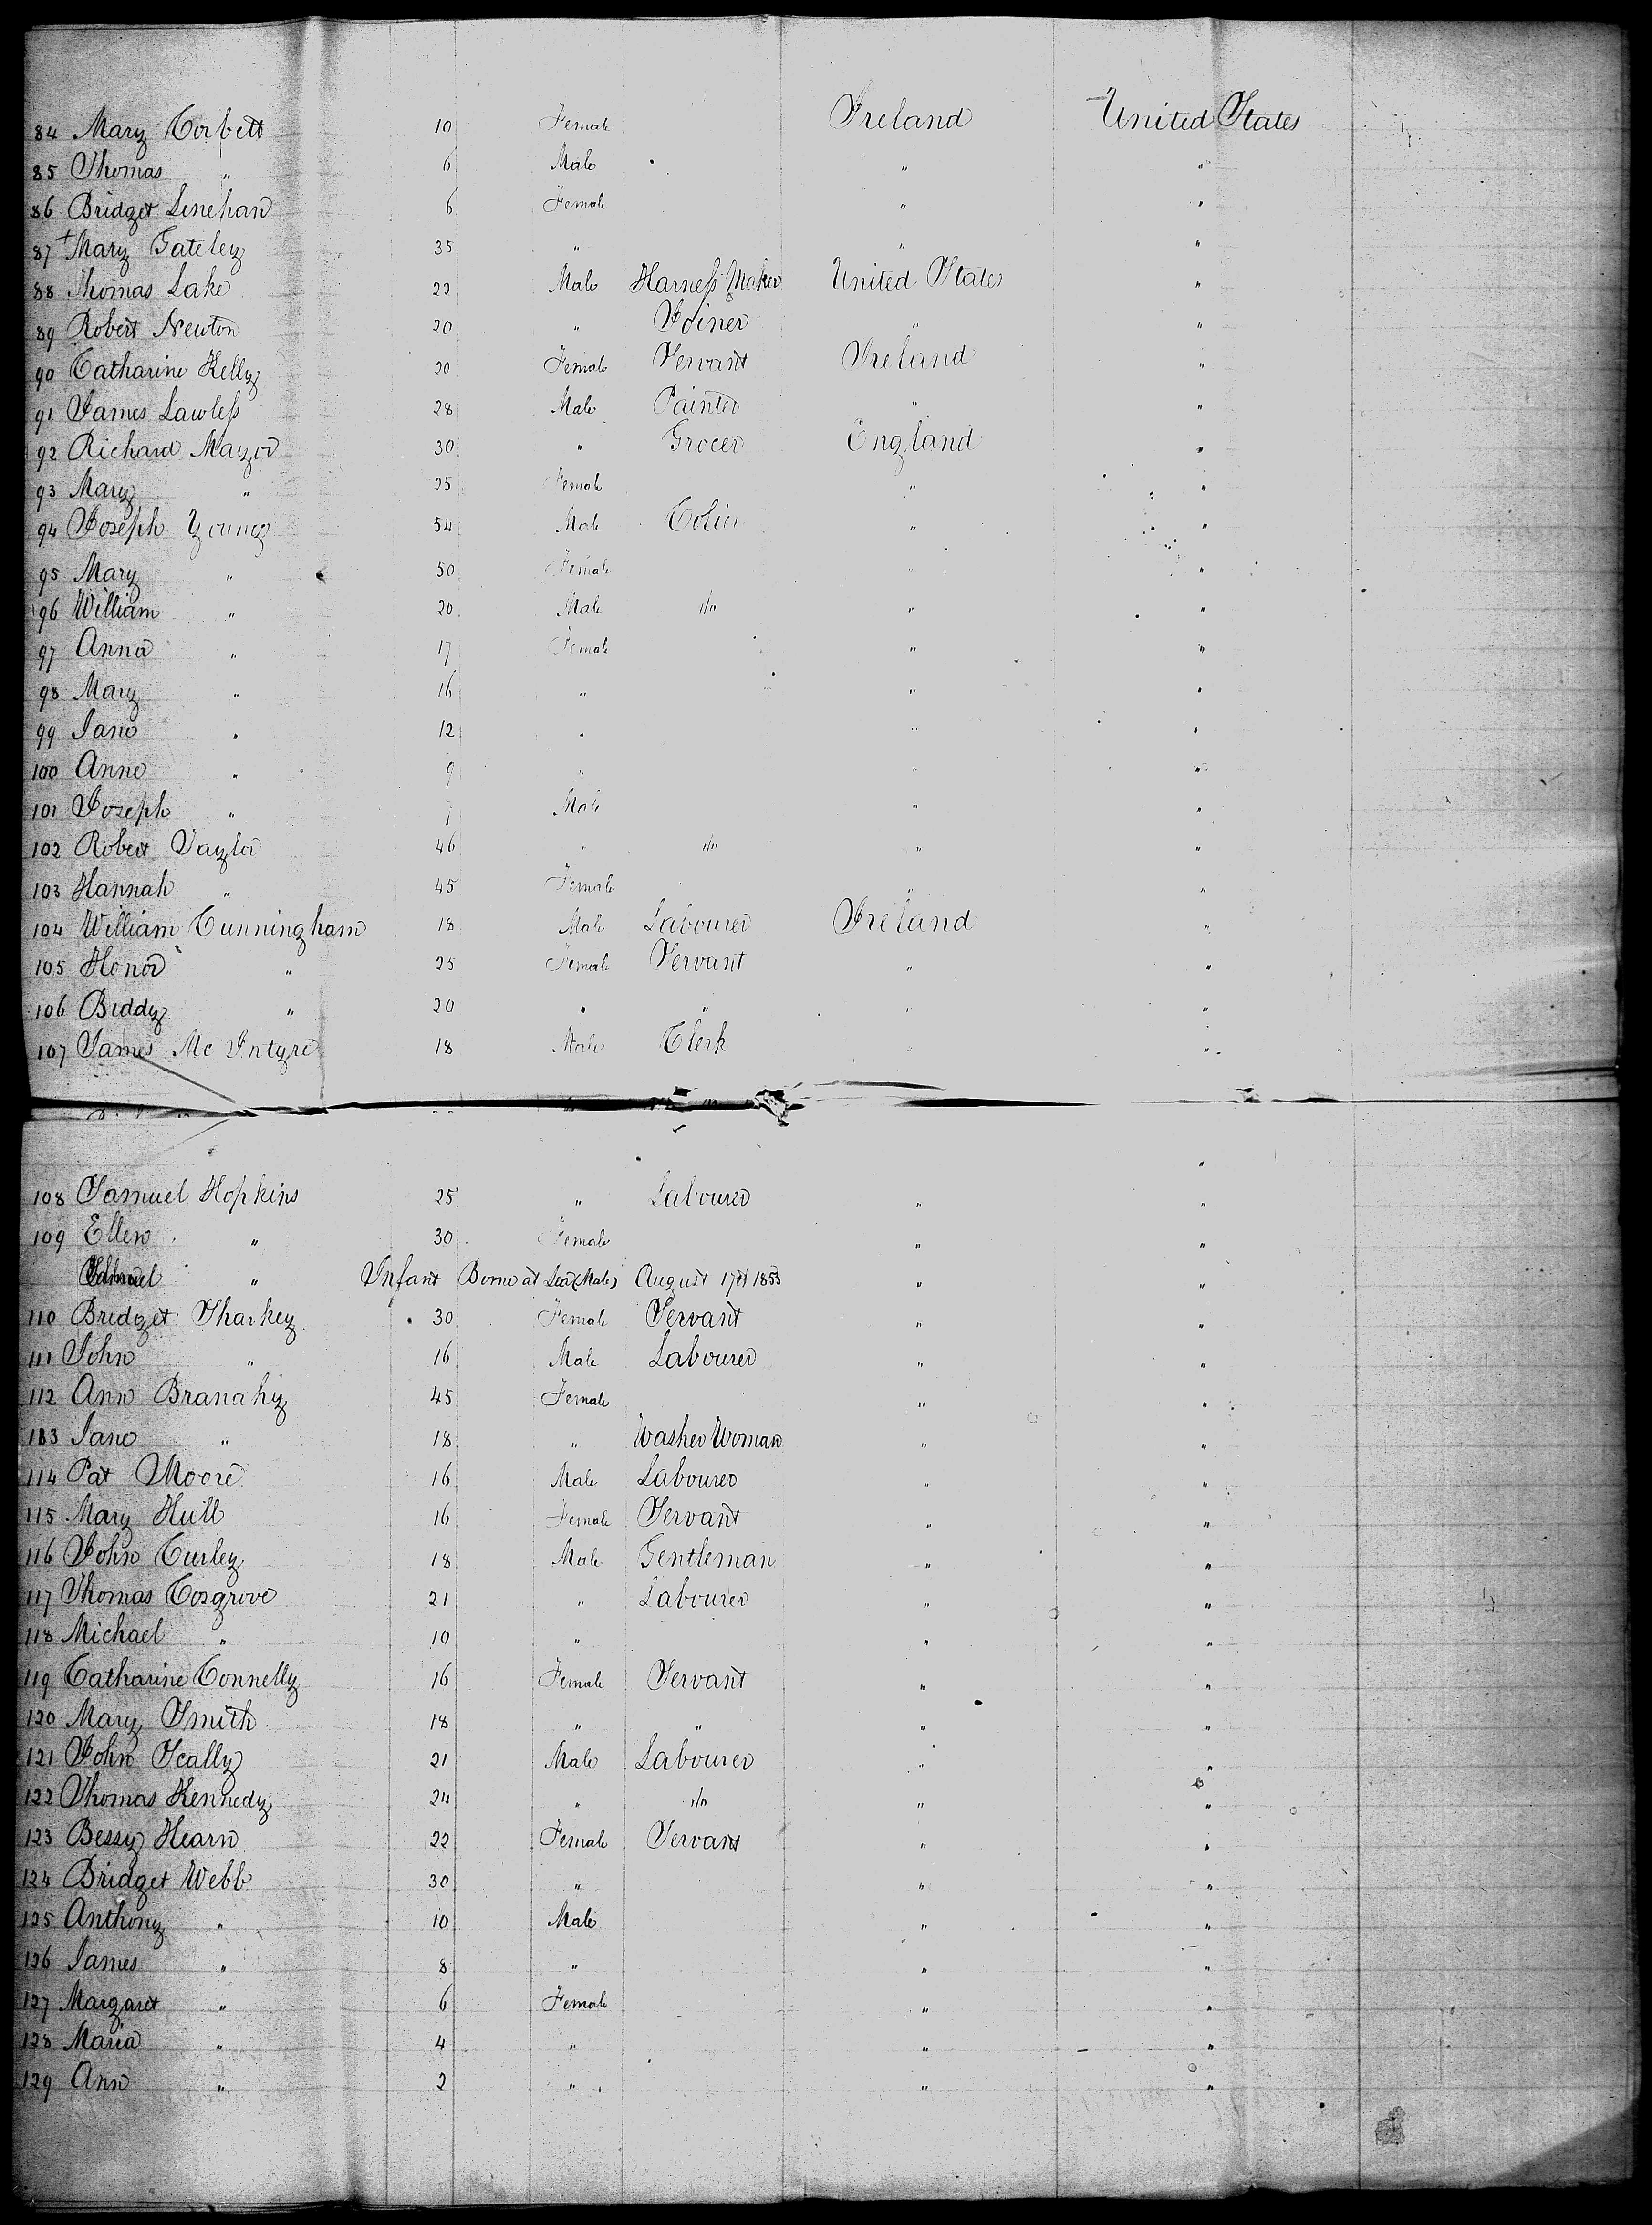 84 Mary Corbett 10 Female Ireland United States
85 Thomas " 6 Male " "
86 Bridget Linehan 6 Female " "
87 + Mary Gateley 35 " " "
88 Thomas Lake 22 Male Harness Maker United States "
89 Robert Newton 20 " Joiner " "
90 Catharine Kelly 20 Female Servant Ireland "
91 James Lawless 28 Male Painter " "
92 Richard Mayor 30 " Grocer England "
93 Mary " 25 Female " "
94 Joseph Young 54 Male Colier " "
95 Mary " 50 Female " "
96 William " 20 Male "/" " "
97 Anna " 17 Female " "
98 Mary " 16 " " "
99 Jane " 12 " " "
100 Anne " 9 " " "
101 Joseph " 7 Male " "
102 Robert Taylor 46 " "/" " "
103 Hannah " 45 Female " "
104 William Cunningham 18 Male Labourer Ireland "
105 Honor " 25 Female Servant " "
106 Biddy " 20 " " " "
107 James McIntyre 18 Male Clerk " "
"
108 Samuel Hopkins 25 " Labourer " "
109 Ellen " 30 Female " "
" Infant Borne at Sea (Male) August 17th 1853 " "
110 Bridget Sharkey 30 Female Servant " "
111 John " 16 Male Labourer " "
112 Ann Branahy 45 Female " "
113 Jane " 18 " Washer Woman " "
114 Pat Moore 16 Male Labourer " "
115 Mary Hull 16 Female Servant " "
116 John Curley 18 Male Gentleman " "
117 Thomas Cosgrove 21 " Labourer " "
118 Michael " 10 " " "
119 Catharine Connelly 16 Female Servant " "
120 Mary Smith 18 " " " "
121 John Scally 21 Male Labourer " "
122 Thomas Kennedy 24 " "/" " "
123 Bessy Hearn 22 Female Servant " "
124 Bridget Webb 30 " " "
125 Anthony " 10 Male " "
126 James " 8 " " "
127 Margaret " 6 Female " "
128 Maria " 4 " " "
129 Ann " 2 " " "